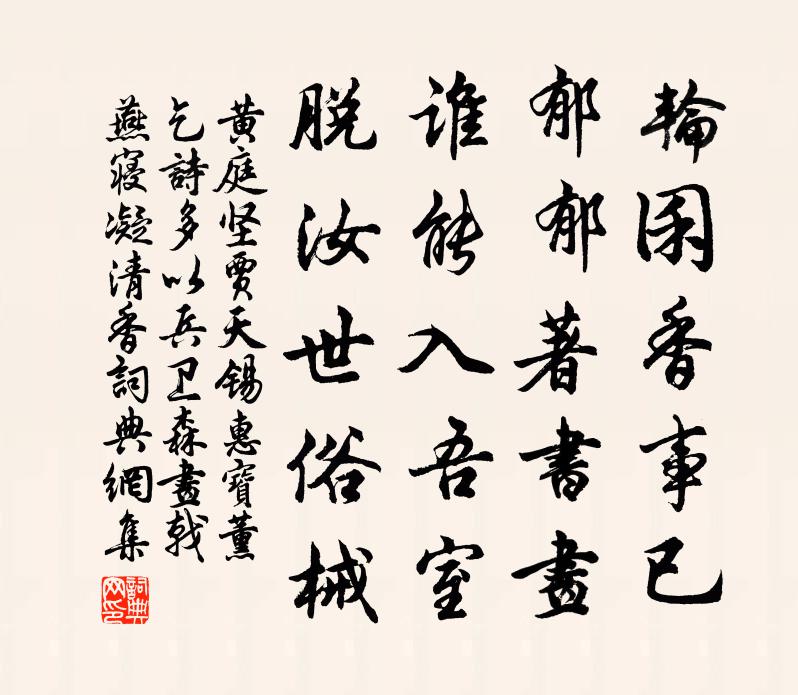 輪囷香事已
郁郁著書畫
谁能入吾室
脱汝世俗械
黄庭坚賈天锡惠寶薰
乞詩多以兵卫森畫戟
燕寢凝清香詞典網集
詞典网印